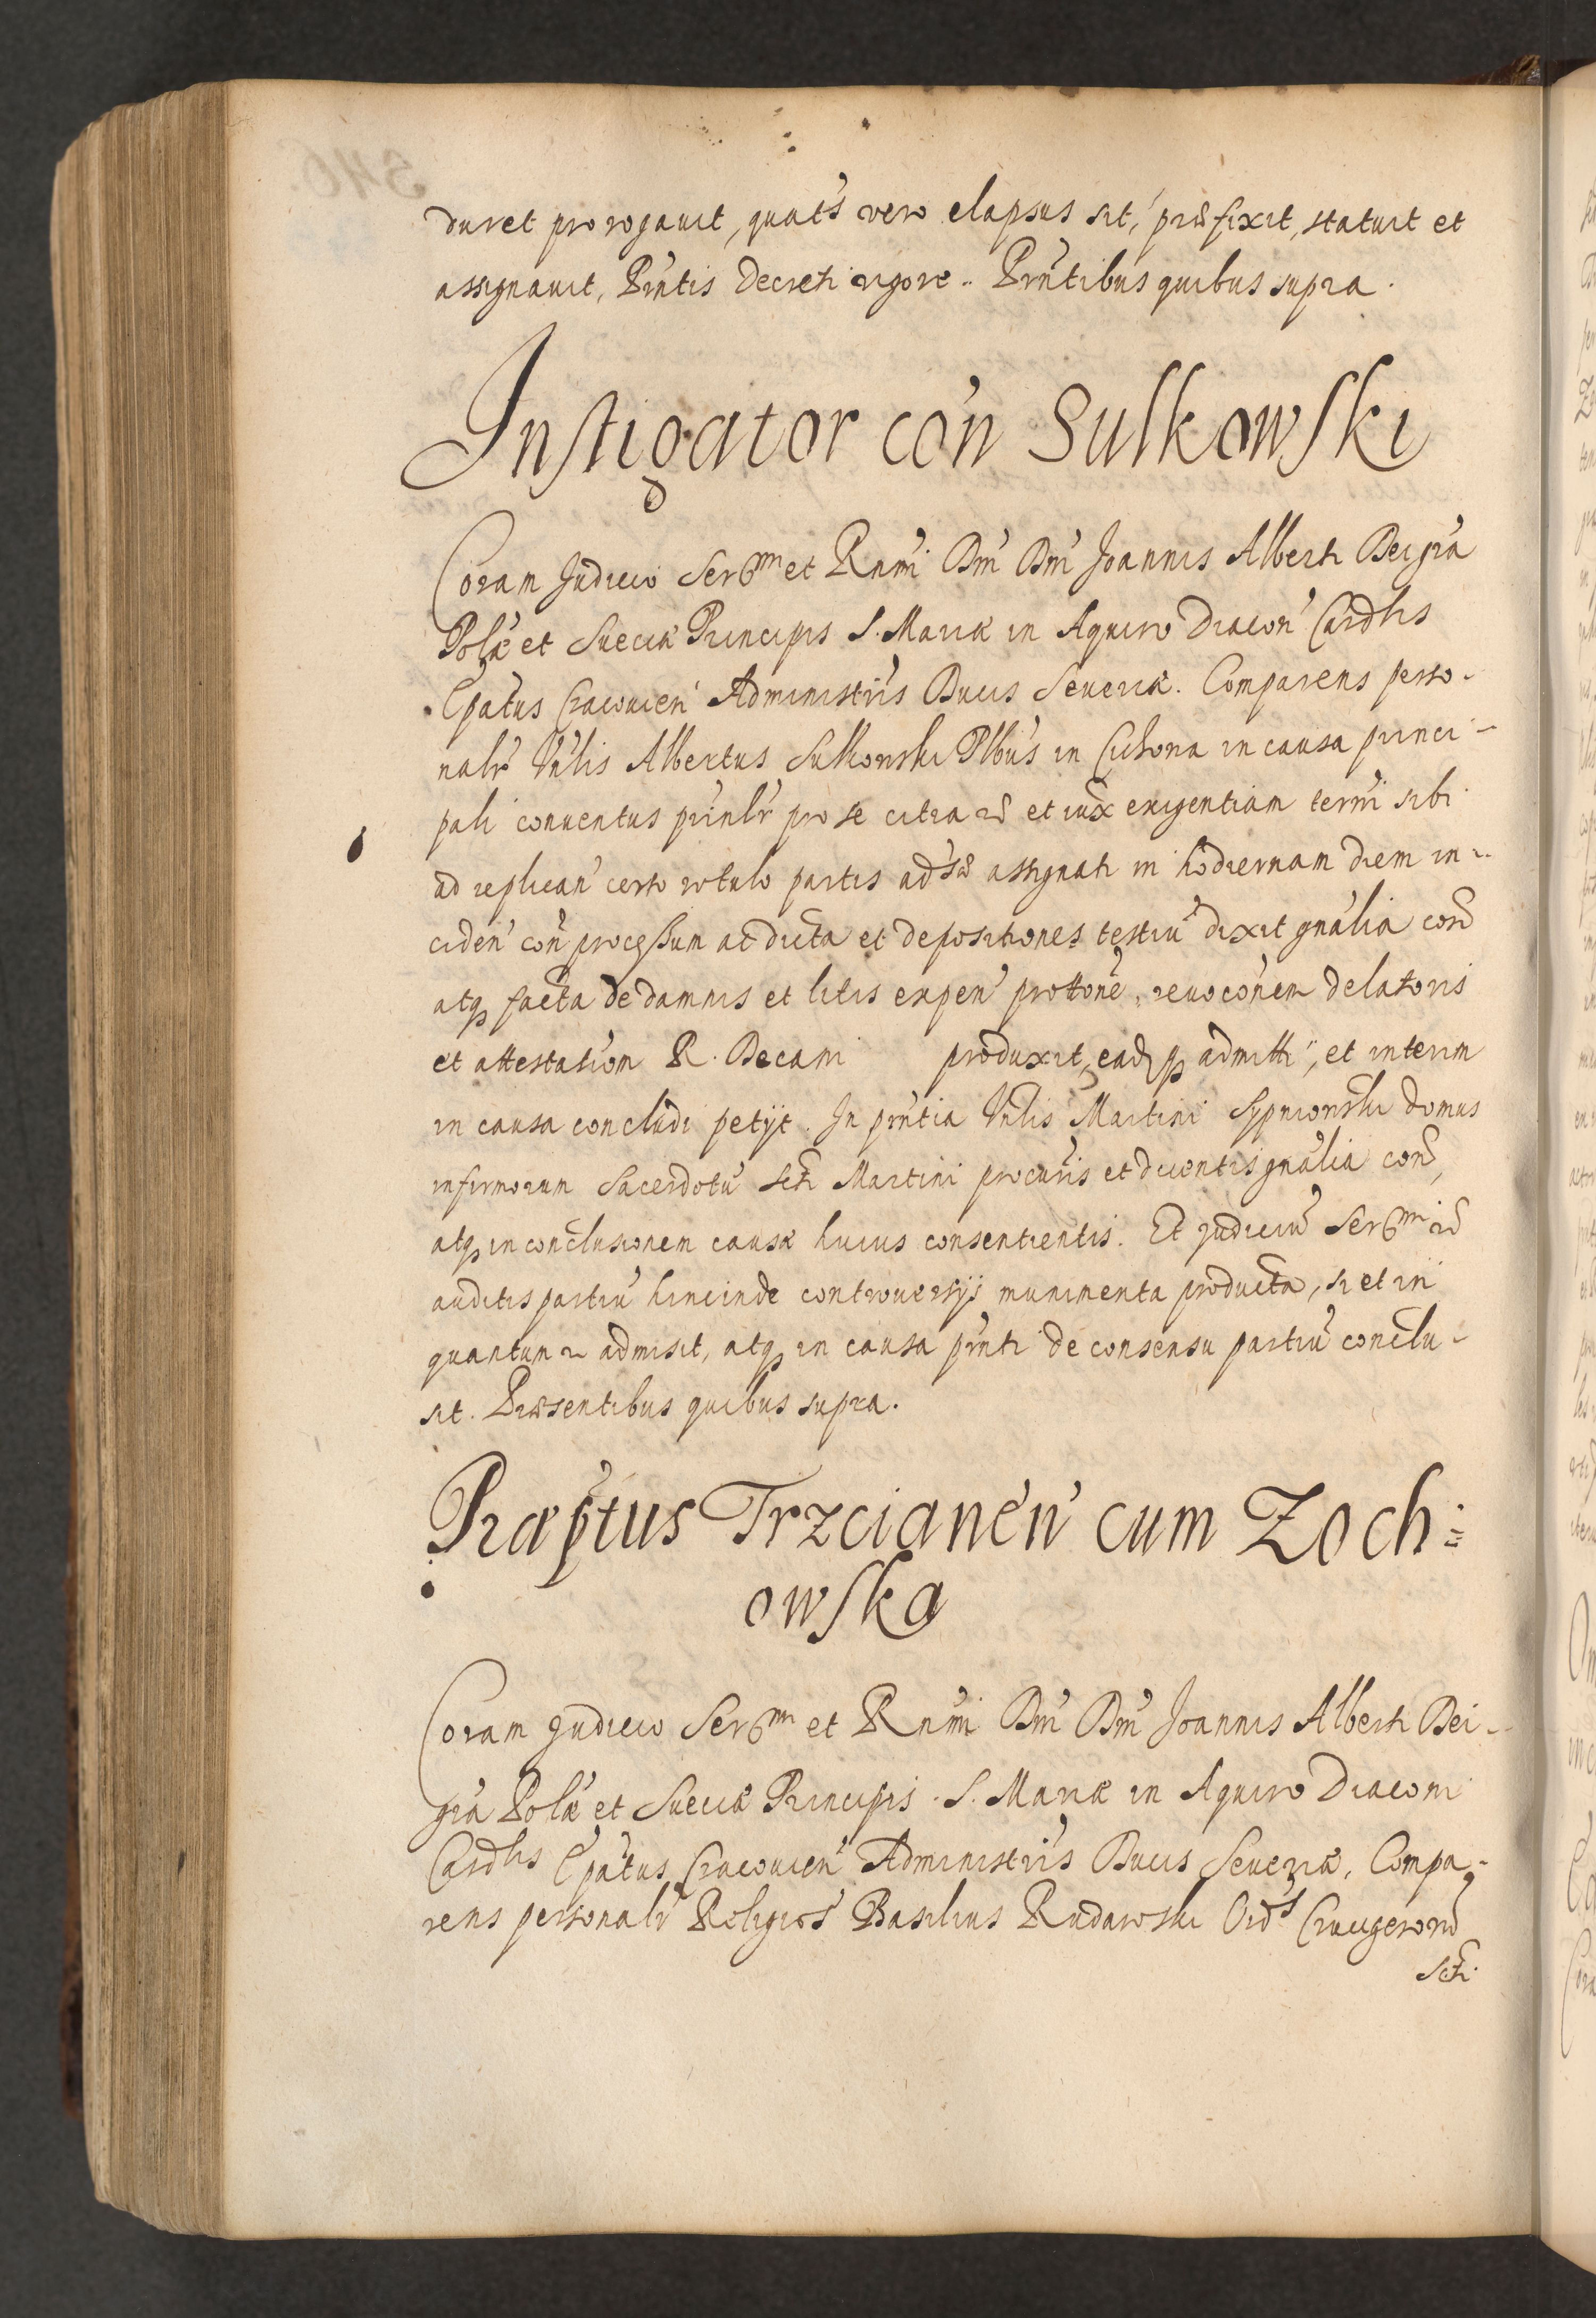 duret prorogauit, quat's vero elapsus sit, præfixit, statuit et
assignauit, Prn'tis Decreti vigore. Prn'tibus quibus supra.
Instigator con' Sulkowski
Coram Judicio Ser^mi et Rn'mi Dni' Dni' Joannis Alberti Dei gr'a
Pol'æ et Sueciæ Principis S. Mariæ in Aquiro Diacon' Card'lis
Ep'atus Cracouien' Administr'is Ducis Seueriæ. Comparens perso-
nalr' Vn'lis Albertus Sulkowski Plb'us in Cichona in causa princi-
pali conuentus prin'lr' pro se citra et iux exigentiam term'i sibi
ad replican' certo rotulo partis adsæ assignati in hodiernam diem in-
ciden' con' processum at dicta et depositiones testiu' dixit gn'alia con'
atq facta de damnis et litis expen' prot'tone', reuoco'nem delatoris
et attestation R. Decani produxit, eadq admitti, et interim
in causa concludi petijt. In prn'tia Vn'lis Martini Sypniowski domus
infirmorum Sacerdotu' Scti Martini procur'is et dicentis gn'alia con'
atq in conclusionem causæ huius consentientis. Et Judiciu' Ser^mi
auditis partiu' hincinde controuersijs munimenta producta, si et in
quantum admisit, atq in causa prn'ti de consensu partiu' conclu-
sit. Præsentibus quibus supra.
Præp'tus Trzcianen' cum Zoch=
owska
Coram Judicio Ser^mi et Rn'mi Dni' Dni' Joannis Alberti Dei
gr'a Pol'æ et Sueciæ Principis S. Mariæ in Aquiro Diaconi
Card'lis Ep'atus Cracouien' Administr'is Ducis Seueriæ, Compa-
rens personalr' Religios' Basilius Rudawski Ord's Crucigeror'
Scti